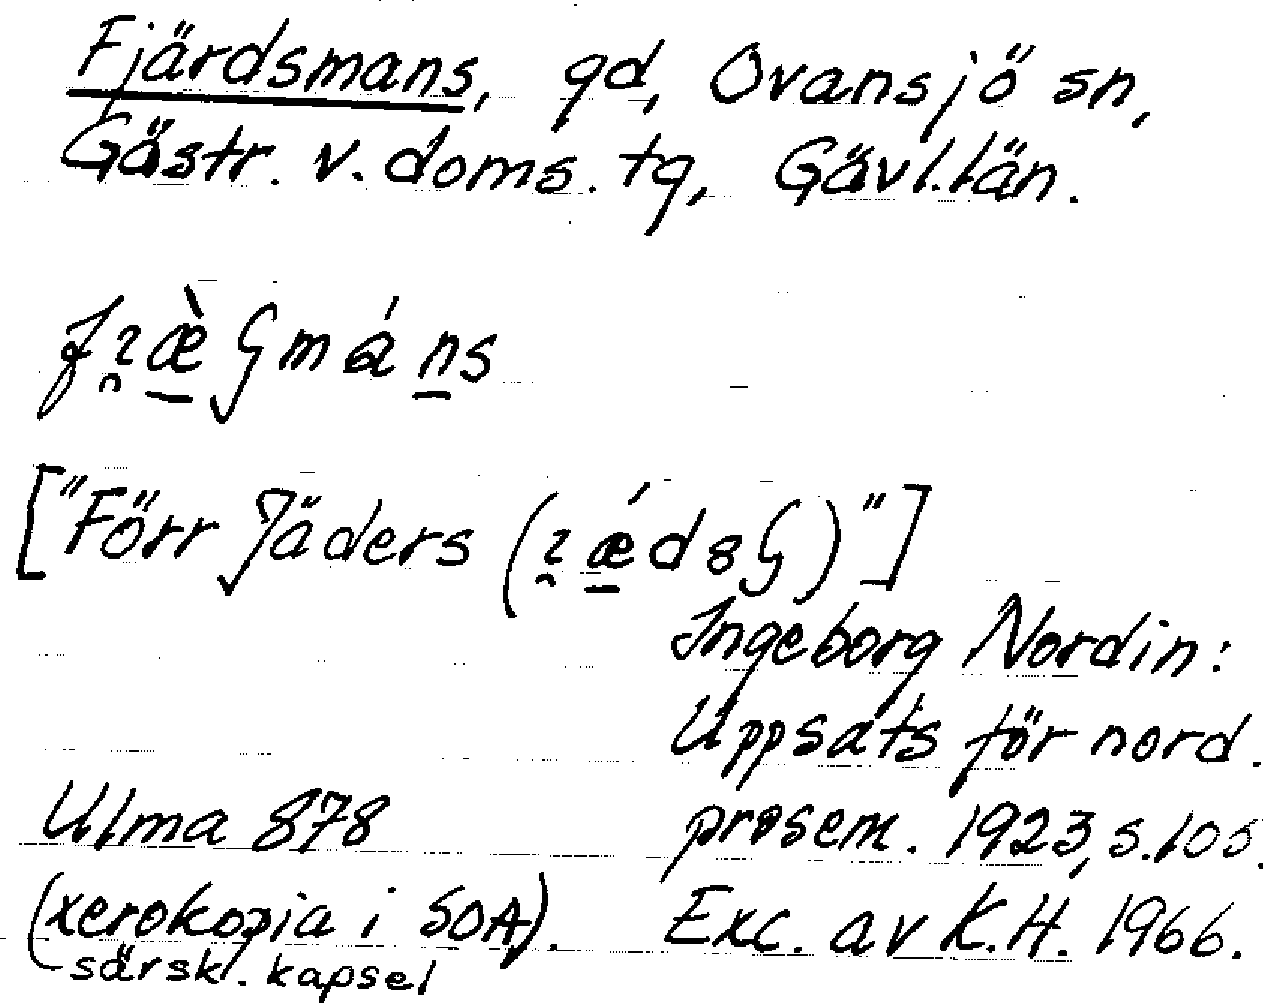 Fjärdsmans, gd, Ovansjö sn,
Gästr. v. doms. tg, Gävl. län.
["Förr Jäders ( )"]
Ingeborg Nordin:
Uppsats för nord.
Ulma 878 prosem. 1923, s. 105.
(xerokopia i SOA). Exc. av K.H. 1966.
särsk. kapsel